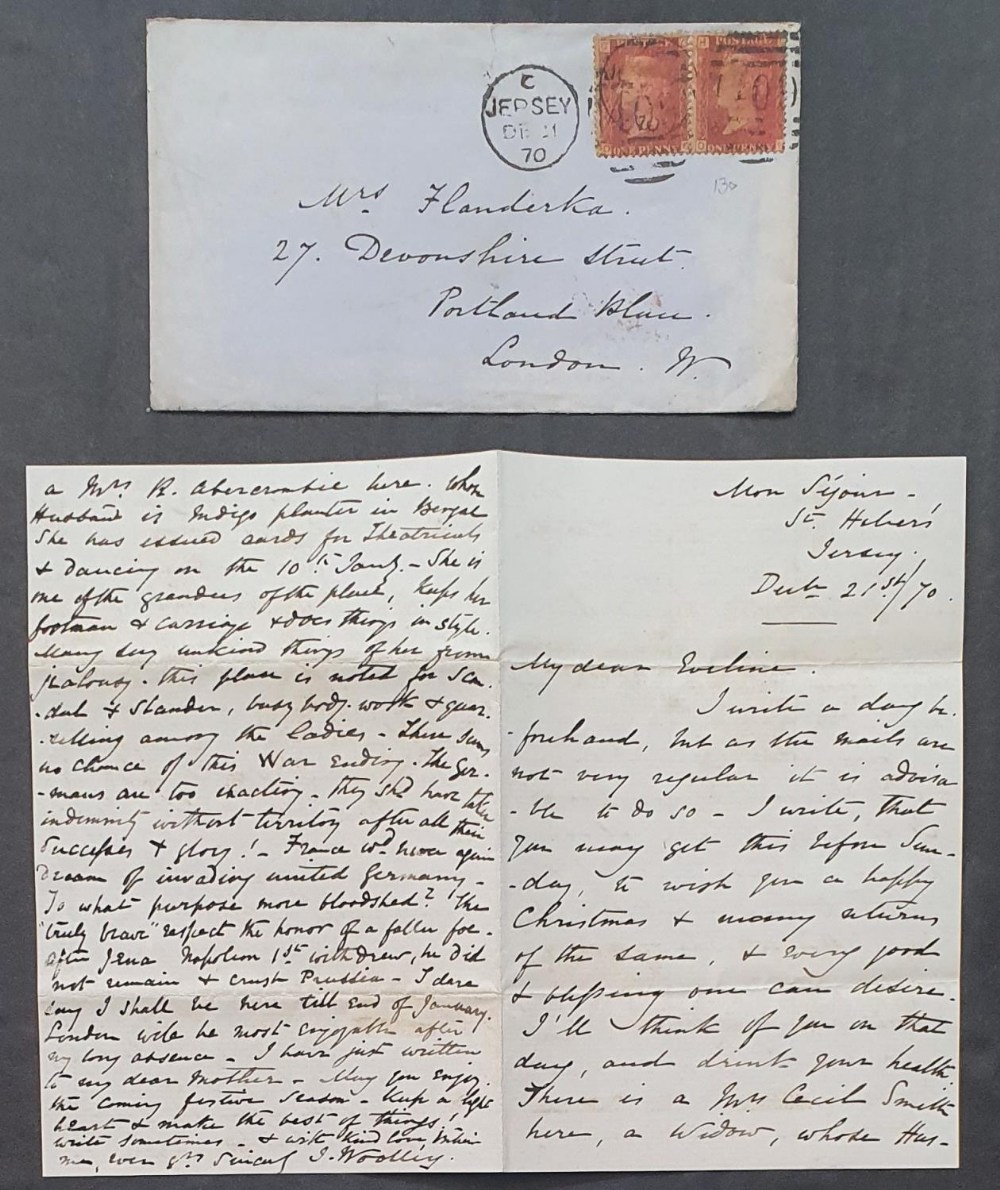 C
JERSEY
DE 21
70
POSTAGE
ONE PENNY
ONE PENNY
130
Mrs Flanderka.
27. Devonshire Street.
Portland Place.
London. W.
Mon Séjour -
St. Helier's
Jersey.
Decbr 21st/70.
My dear Eveline.
I write a day be-
-forehand, but as the mails are
not very regular it is advisa
-ble to do so - I write, that
you may get this before Sun-
-day, to wish you a happy
Christmas & many returns
of the same, & every good
& blessing one can desire.
I'll think of you on that
day, and drink your health.
There is a Mrs Cecil Smith
here, a Widow, whose Hus-
a Mrs R. Abercrombie here. Whose
Husband is Indigo planter in Bengal
She has issued cards for Theatricals
& Dancing on the 10th Jany. - She is
one of the grandees of the place, Keeps her
footman & carriage & does things in style.
Many say unkind things of her from
jealousy - this place is noted for Scan-
-dal & Slander, busy body-work & quar-
-relling among the ladies - There seems
no chance of this War Ending - The Ger-
-mans are too exacting - they shd have taken
indemnity without territory after all their
Successes & glory! - France wd never again
Dream of invading united Germany -
To what purpose more bloodshed? The
"truly brave" respect the honor of a fallen foe -
after Jena Napoleon 1st withdrew, he did
not remain & crush Prussia - I dare
say I shall be here till End of January.
London will be most enjoyable after
my long absence - I have just written
to my dear Mother - May you Enjoy
the coming festive Season - Keep a light
heart & make the best of things!
write sometimes - & with kind love, believe
me, ever yrs Sincerely J. Woolley.